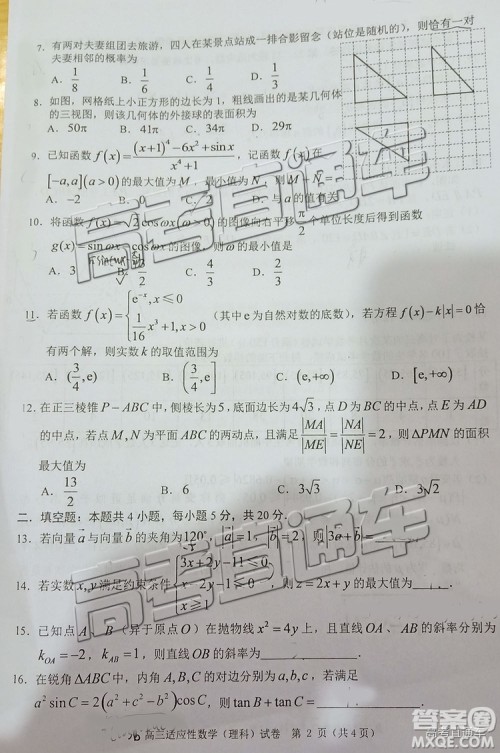 7. 有两对夫妻组团去旅游,四人在某景点站成一排合影留念(站位是随机的),则恰有一对
夫妻相邻的概率为
A. 1/8 B. 1/6 C. 1/4 D. 1/3
8. 如图,网格纸上小正方形的边长为1,粗线画出的是某几何体
的三视图,则该几何体的外接球的表面积为
A. 50π B. 41π C. 34π D.
9. 已知函数 f(x)=((x+1)^4-6x^2+sinx)/(x^4+1),记函数 f(x) 在
[-a,a](a>0) 的最大值为 M,最小值为 N,则 M+N=
A. -2 B. 0 C. D.
10. 将函数 f(x)=√2cosωx(ω>0) 的图像向右平移 个单位长度后得到函数
g(x)=sinωx 的图像,则 ω 的最小值是
A. 3 B. C. 4/3 D. 2/3
11. 若函数 f(x)={e^{-x},x≤0
1/16 x^3+1,x>0 (其中e为自然对数的底数),若方程 f(x)-k|x|=0 恰
有两个解,则实数 k 的取值范围为
A. (3/4,e) B. (3/4,e] C. (e,+∞) D.
12. 在正三棱锥 P-ABC 中,侧棱长为5,底面边长为 4√3,点 D 为 BC 的中点,点 E 为 AD
的中点,若点 M,N 为平面 ABC 的两动点,且满足 |MA|/|ME|=|NA|/|NE|=2,则 △PMN 的面积
最大值为
A. 13/2 B. 6 C. 3√3 D. 3√2
二. 填空题:本题共4小题,每小题5分,共20分.
13. 若向量 a 与向量 b 的夹角为120°,|a|=1,|b|=2,则 |3a+b|=
14. 若实数 x,y 满足约束条件 {3x+2y-11≤0
x-2y-1≤0
x≥1,则 z=2x+y 的最大值为
15. 已知点 A、B(异于原点 O)在抛物线 x^2=4y 上,且直线 OA、AB 的斜率分别为
k_{OA}=-2,k_{AB}=1,则直线 OB 的斜率为
16. 在锐角 △ABC 中,内角 A,B,C 的对边分别为 a,b,c,若满足
a^2 sinC=2(a^2+c^2-b^2)cosC,则 tanB+tanC=
高三适应性数学(理科)试卷 第2页(共4页)
高考直通车
高考直通车
高考直通车